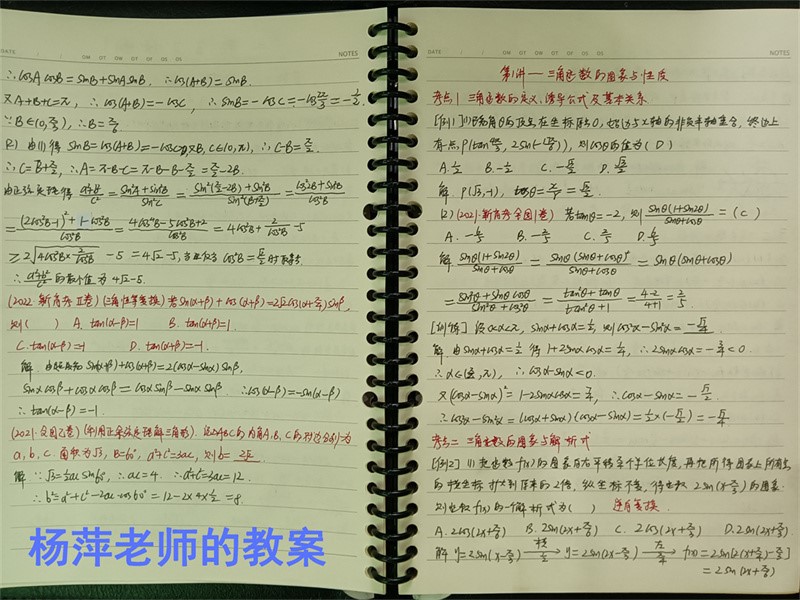 DATE
NOTES
∴cosA cosB = sinB + sinA sinB, ∴cos(A+B) = sinB.
又A+B+C=π, ∴cos(A+B) = -cosC, ∴sinB = -cosC = -cos
∵B∈(0, π/3), ∴B = π/6
(2) 由(1)得 sinB = cos(A+B) = -cosC
∴C = B+π/2, ∴A = π-B-C = π-B-B-π/2 = π/2-2B.
由正弦定理得 (a²+b²)/c² = (sin²A+sin²B)/sin²C = (sin²(π/2-2B)+sin²B)/sin²(B+π/2) = (cos²2B+sin²B)/cos²B
= ((2cos²B-1)²+1-cos²B)/cos²B = (4cos⁴B-5cos²B+2)/cos²B = 4cos²B + 2/cos²B -5
≥2√(4cos²B × 2/cos²B) -5 = 4√2-5, 当且仅当 cos²B = √2/2 时取等号
∴(a²+b²)/c² 的最小值为 4√2-5.
(2022 新高考Ⅱ卷)(三角恒等变换) 若sin(α+β)+cos(α+β)=2√2cos(α+π/4)sinβ,
则( ) A. tan(α-β)=1 B. tan(α+β)=1.
C. tan(α-β)=-1 D. tan(α+β)=-1.
解 由题意知 sin(α+β)+cos(α+β)=2(cosα-sinα)sinβ,
sinαcosβ+cosαcosβ = cosαsinβ-sinαsinβ ∴cos(α-β)=-sin(α-β)
∴tan(α-β)=-1.
(2021·全国乙卷)(利用正余弦定理解三角形). 记△ABC的内角A,B,C的对边分别为
a,b,c. 面积为√3, B=60°, a²+c²=3ac, 则b= 2√2
解 ∵√3=½ac sin60°, ∴ac=4. ∴a²+c²=3ac=12.
∴b²=a²+c²-2ac·cos60°=12-2×4×½=8.
杨萍老师的教案
DATE
NOTES
第1讲——三角函数的图象与性质
考点1 三角函数的定义、诱导公式及基本关系
[例1](1)已知角θ的顶点在坐标原点O,始边与x轴的非负半轴重合,终边上
有一点P(tan, 2sin(-)), 则cosθ的值为(D)
A. ½ B. -½ C. -√3/2 D. √3/2
解 P(√3,-1), cosθ = x/r = √3/2.
(2)(2021·新高考全国Ⅰ卷) 若tanθ=-2, 则 sinθ(1+sin2θ)/(sinθ+cosθ) = (C)
A. -6/5 B. -2/5 C. 2/5 D. 6/5
解 sinθ(1+sin2θ)/(sinθ+cosθ) = sinθ(sinθ+cosθ)²/(sinθ+cosθ) = sinθ(sinθ+cosθ)
= (sin²θ+sinθcosθ)/(sin²θ+cos²θ) = (tan²θ+tanθ)/(tan²θ+1) = (4-2)/(4+1) = 2/5
[训练] 设0<α<π, sinα+cosα=½, 则cos²α-sin²α= -√7/4
解 由sinα+cosα=½ 得 1+2sinαcosα=¼, ∴2sinαcosα=-¾<0
∴α∈(π/2,π), ∴cosα-sinα<0.
又(cosα-sinα)²=1-2sinαcosα=7/4, ∴cosα-sinα=-√7/2
∴cos²α-sin²α=(cosα+sinα)(cosα-sinα)=½×(-√7/2)=-√7/4
考点二 三角函数的图象与解析式
[例2](1)把函数f(x)的图象向右平移个单位长度,再把所得图象上所有点
的横坐标扩大到原来的2倍,纵坐标不变,得函数2sin(x-π/3)的图象.
则函数f(x)的一个解析式为( ) 逆向变换
A. 2cos(2x+π/6) B. 2sin(2x+π/6) C. 2cos(2x+π/3) D. 2sin(2x+π/3).
解 y=2sin(x-π/3) → y=2sin(2x-π/3) → f(x)=2sin[2(x+π/4)-π/3]
=2sin(2x+π/6)